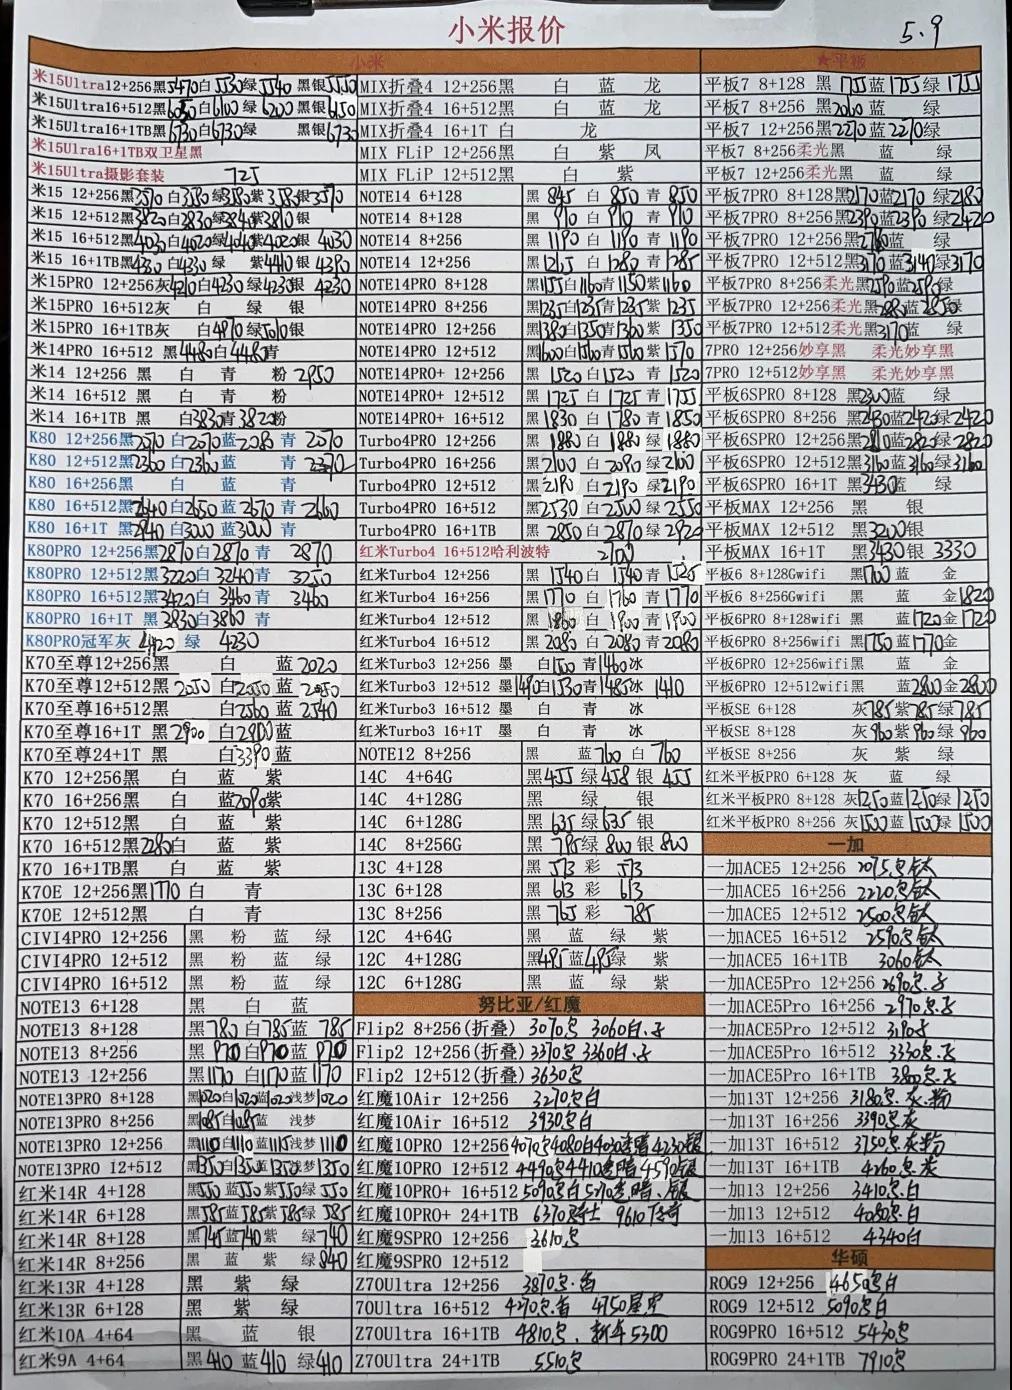 小米报价
5.9
小米
★平板
米15Ultra12+256黑5470白5530绿5540 黑银5550
米15Ultra16+512黑6050白6100绿6200黑银6150
米15Ultra16+1TB黑6730白6730绿 黑银6730
米15Ulra16+1TB双卫星黑
米15Ultra摄影套装 725
米15 12+256黑3570白3580绿3580紫3580银3570
米15 12+512黑3820白3830绿3840紫3810银
米15 16+512黑4030白4020绿4040紫4020银 4030
米15 16+1TB黑4330白4330绿 紫4410银 4390
米15PRO 12+256灰4210白4230绿4230银 4230
米15PRO 16+512灰 白 绿 银
米15PRO 16+1TB灰 白4970绿5010银
米14PRO 16+512 黑4480白4485青
米14 12+256 黑 白 青 粉2950
米14 16+512 黑 白 青 粉
米14 16+1TB 黑 白3830青3820粉
K80 12+256黑2070白2070蓝2080青 2070
K80 12+512黑2360白2360蓝 青 2370
K80 16+256黑 白 蓝 青
K80 16+512黑2640白2650蓝2670青 2660
K80 16+1T 黑2940白3000蓝3000青
K80PRO 12+256黑2870白2870青 2870
K80PRO 12+512黑3220白3240青 3250
K80PRO 16+512黑3420白3460青 3460
K80PRO 16+1T 黑3830白3860青
K80PRO冠军灰 4420 绿 4230
K70至尊12+256黑 白 蓝2020
K70至尊12+512黑2050白2050蓝2050
K70至尊16+512黑 白2560蓝2540
K70至尊16+1T 黑2900 白2900蓝
K70至尊24+1T 黑 白3390蓝
K70 12+256黑 白 蓝 紫
K70 16+256黑 白 蓝2090紫
K70 12+512黑 白 蓝 紫
K70 16+512黑2280白 蓝 紫
K70 16+1TB黑 白 蓝 紫
K70E 12+256黑1770白 青
K70E 12+512黑 白 青
CIVI4PRO 12+256 黑 粉 蓝 绿
CIVI4PRO 12+512 黑 粉 蓝 绿
CIVI4PRO 16+512 黑 粉 蓝 绿
NOTE13 6+128 黑 白 蓝
NOTE13 8+128 黑780白785蓝 785
NOTE13 8+256 黑970白970蓝 970
NOTE13 12+256 黑1170白1170蓝1170
NOTE13PRO 8+128 黑1020白1020蓝1020浅梦1020
NOTE13PRO 8+256 黑1085白1085蓝 浅梦
NOTE13PRO 12+256 黑1110白1110蓝1115浅梦1110
NOTE13PRO 12+512 黑1350白1350蓝1350浅梦1350
红米14R 4+128 黑550蓝550紫550绿550
红米14R 6+128 黑585蓝585紫585绿585
红米14R 8+128 黑745蓝740紫 绿740
红米14R 8+256 黑 蓝 紫 绿840
红米13R 4+128 黑 紫 绿
红米13R 6+128 黑 紫 绿
红米10A 4+64 黑 蓝 银
红米9A 4+64 黑410蓝410绿410
MIX折叠4 12+256黑 白 蓝 龙
MIX折叠4 16+512黑 白 蓝 龙
MIX折叠4 16+1T 白 龙
MIX FLiP 12+256黑 白 紫 凤
MIX FLiP 12+512黑 白 紫
NOTE14 6+128 黑 845 白 850青 850
NOTE14 8+128 黑 910 白 910青 910
NOTE14 8+256 黑 1190白 1190青 1190
NOTE14 12+256 黑1265白 1280青 1285
NOTE14PRO 8+128 黑1155白1160青1150紫1160
NOTE14PRO 8+256 黑1235白1235青1235紫 1235
NOTE14PRO 12+256 黑1380白1350青1360紫 1350
NOTE14PRO 12+512 黑1600白1560青1560紫 1570
NOTE14PRO+ 12+256 黑 1520白1520青 1520
NOTE14PRO+ 12+512 黑 1725白 1725青 1755
NOTE14PRO+ 16+512 黑1830白 1780青 1850
Turbo4PRO 12+256 黑 1880白 1880绿 1880
Turbo4PRO 16+256 黑2100白2090绿2100
Turbo4PRO 12+512 黑 2190白 2190绿2190
Turbo4PRO 16+512 黑2530白 2500绿 2550
Turbo4PRO 16+1TB 黑 2850白 2870绿 2920
红米Turbo4 16+512哈利波特 2700
红米Turbo4 12+256 黑 1540白 1540青 1525
红米Turbo4 16+256 黑 1770白 1760青 1770
红米Turbo4 12+512 黑 1860白 1900青 1900
红米Turbo4 16+512 黑 2080白 2080青 2080
红米Turbo3 12+256 墨 白1500青1460冰
红米Turbo3 12+512 墨1490白1530青1485冰 1410
红米Turbo3 16+512 墨 白 青 冰
红米Turbo3 16+1T 墨 白 青 冰
NOTE12 8+256 黑 蓝760 白 760
14C 4+64G 黑455绿458银 455
14C 4+128G 黑 绿 银
14C 6+128G 黑 635绿635银
14C 8+256G 黑 795绿800银800
13C 4+128 黑 513 彩 513
13C 6+128 黑 613 彩 613
13C 8+256 黑 765彩 785
12C 4+64G 黑 蓝 绿 紫
12C 4+128G 黑495蓝495绿 紫
12C 6+128G 黑 蓝 绿 紫
努比亚/红魔
Flip2 8+256(折叠) 3070黑 3060白.
Flip2 12+256(折叠) 3370黑3360白.
Flip2 12+512(折叠) 3630黑
红魔10Air 12+256 3270黑白
红魔10Air 16+512 3930黑白
红魔10PRO 12+256 4070黑4080白4030透暗4230银
红魔10PRO 12+512 4490黑4410透暗4590银
红魔10PRO+ 16+512 5090黑白5270透暗.银
红魔10PRO+ 24+1TB 6370骑士 9610传奇
红魔9SPRO 12+256 3610黑
红魔9SPRO 12+512
Z70Ultra 12+256 3870黑.
70Ultra 16+512 4270黑. 4750星空
Z70Ultra 16+1TB 4810黑. 5300
Z70Ultra 24+1TB 5510黑
平板7 8+128 黑 1755蓝1755绿 1755
平板7 8+256 黑2060蓝 绿
平板7 12+256黑2270蓝2270绿
平板7 8+256柔光黑 蓝 绿
平板7 12+256柔光黑 蓝 绿
平板7PRO 8+128黑2170蓝2170 绿2180
平板7PRO 8+256黑2390蓝2390 绿2420
平板7PRO 12+256黑2760蓝 绿
平板7PRO 12+512黑3170蓝3140绿3170
平板7PRO 8+256柔光黑2590蓝2590绿
平板7PRO 12+256柔光黑2880蓝2850绿
平板7PRO 12+512柔光黑3170蓝 绿
7PRO 12+256妙享黑 柔光妙享黑
7PRO 12+512妙享黑 柔光妙享黑
平板6SPRO 8+128 黑2300蓝 绿
平板6SPRO 8+256 黑2430蓝2420绿2420
平板6SPRO 12+256黑2810蓝2820绿2820
平板6SPRO 12+512黑3160蓝3160绿3160
平板6SPRO 16+1T 黑3430蓝 绿
平板MAX 12+256 黑 银
平板MAX 12+512 黑3200银
平板MAX 16+1T 黑3430银 3330
平板6 8+128Gwifi 黑1700 蓝 金
平板6 8+256Gwifi 黑 蓝 金1820
平板6PRO 8+128wifi 黑 蓝1720金1720
平板6PRO 8+256wifi 黑1750蓝1770金
平板6PRO 12+256wifi黑 蓝 金
平板6PRO 12+512wifi黑 蓝2800金2800
平板SE 6+128 灰785紫785绿785
平板SE 8+128 灰960紫960绿 960
平板SE 8+256 灰 紫 绿
红米平板PRO 6+128 灰 蓝 绿
红米平板PRO 8+128 灰1250蓝1250绿1250
红米平板PRO 8+256 灰1500蓝1500绿1500
一加
一加ACE5 12+256 2075黑钛
一加ACE5 16+256 2220黑钛
一加ACE5 12+512 2500黑钛
一加ACE5 16+512 2590黑钛
一加ACE5 16+1TB 3060钛
一加ACE5Pro 12+256 2690黑.
一加ACE5Pro 16+256 2970黑.
一加ACE5Pro 12+512 3190
一加ACE5Pro 16+512 3330黑.
一加ACE5Pro 16+1TB 3800黑.
一加13T 12+256 3180黑.灰.粉
一加13T 16+256 3390黑灰
一加13T 16+512 3750黑灰粉
一加13T 16+1TB 4260黑.灰
一加13 12+256 3410黑.白
一加13 12+512 4080黑.白
一加13 16+512 4340白
华硕
ROG9 12+256 4650黑白
ROG9 12+512 5090黑白
ROG9PRO 16+512 5430黑
ROG9PRO 24+1TB 7910黑